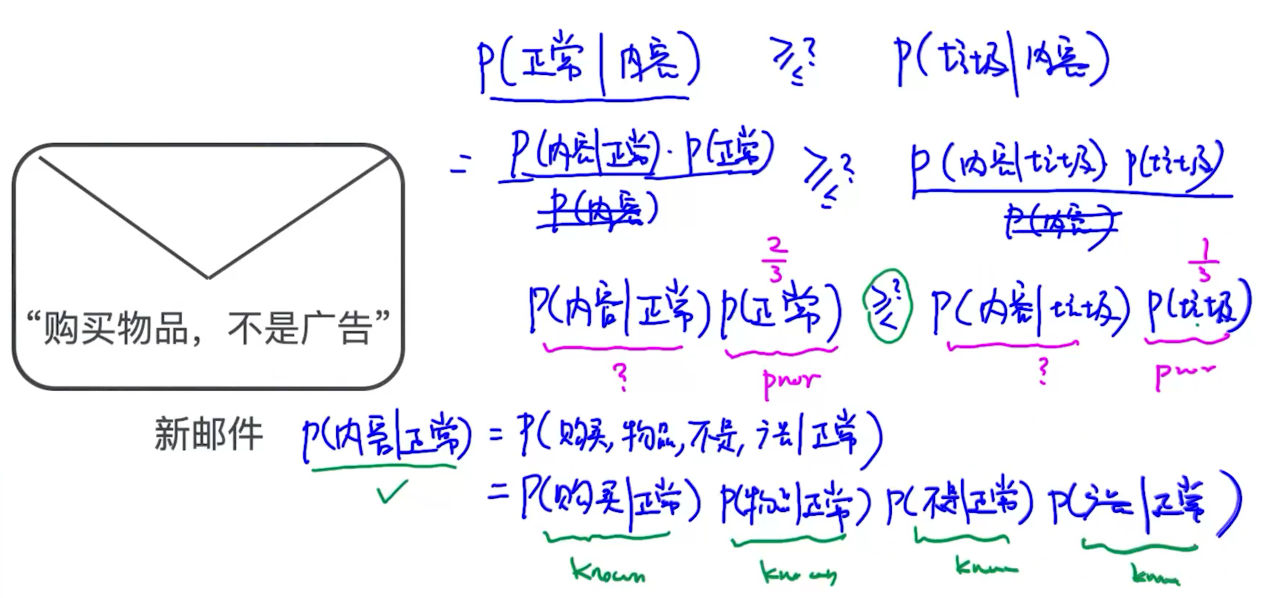 P(正常|内容) ≥≤? P(垃圾|内容)
= P(内容|正常)·P(正常) / P(内容) ≥≤? P(内容|垃圾) P(垃圾) / P(内容)
2/3 1/3
P(内容|正常) P(正常) ≥≤? P(内容|垃圾) P(垃圾)
? prior ? prior
“购买物品，不是广告”
新邮件
P(内容|正常) = P(购买,物品,不是,广告|正常)
✓
= P(购买|正常) P(物品|正常) P(不是|正常) P(广告|正常)
known known known known